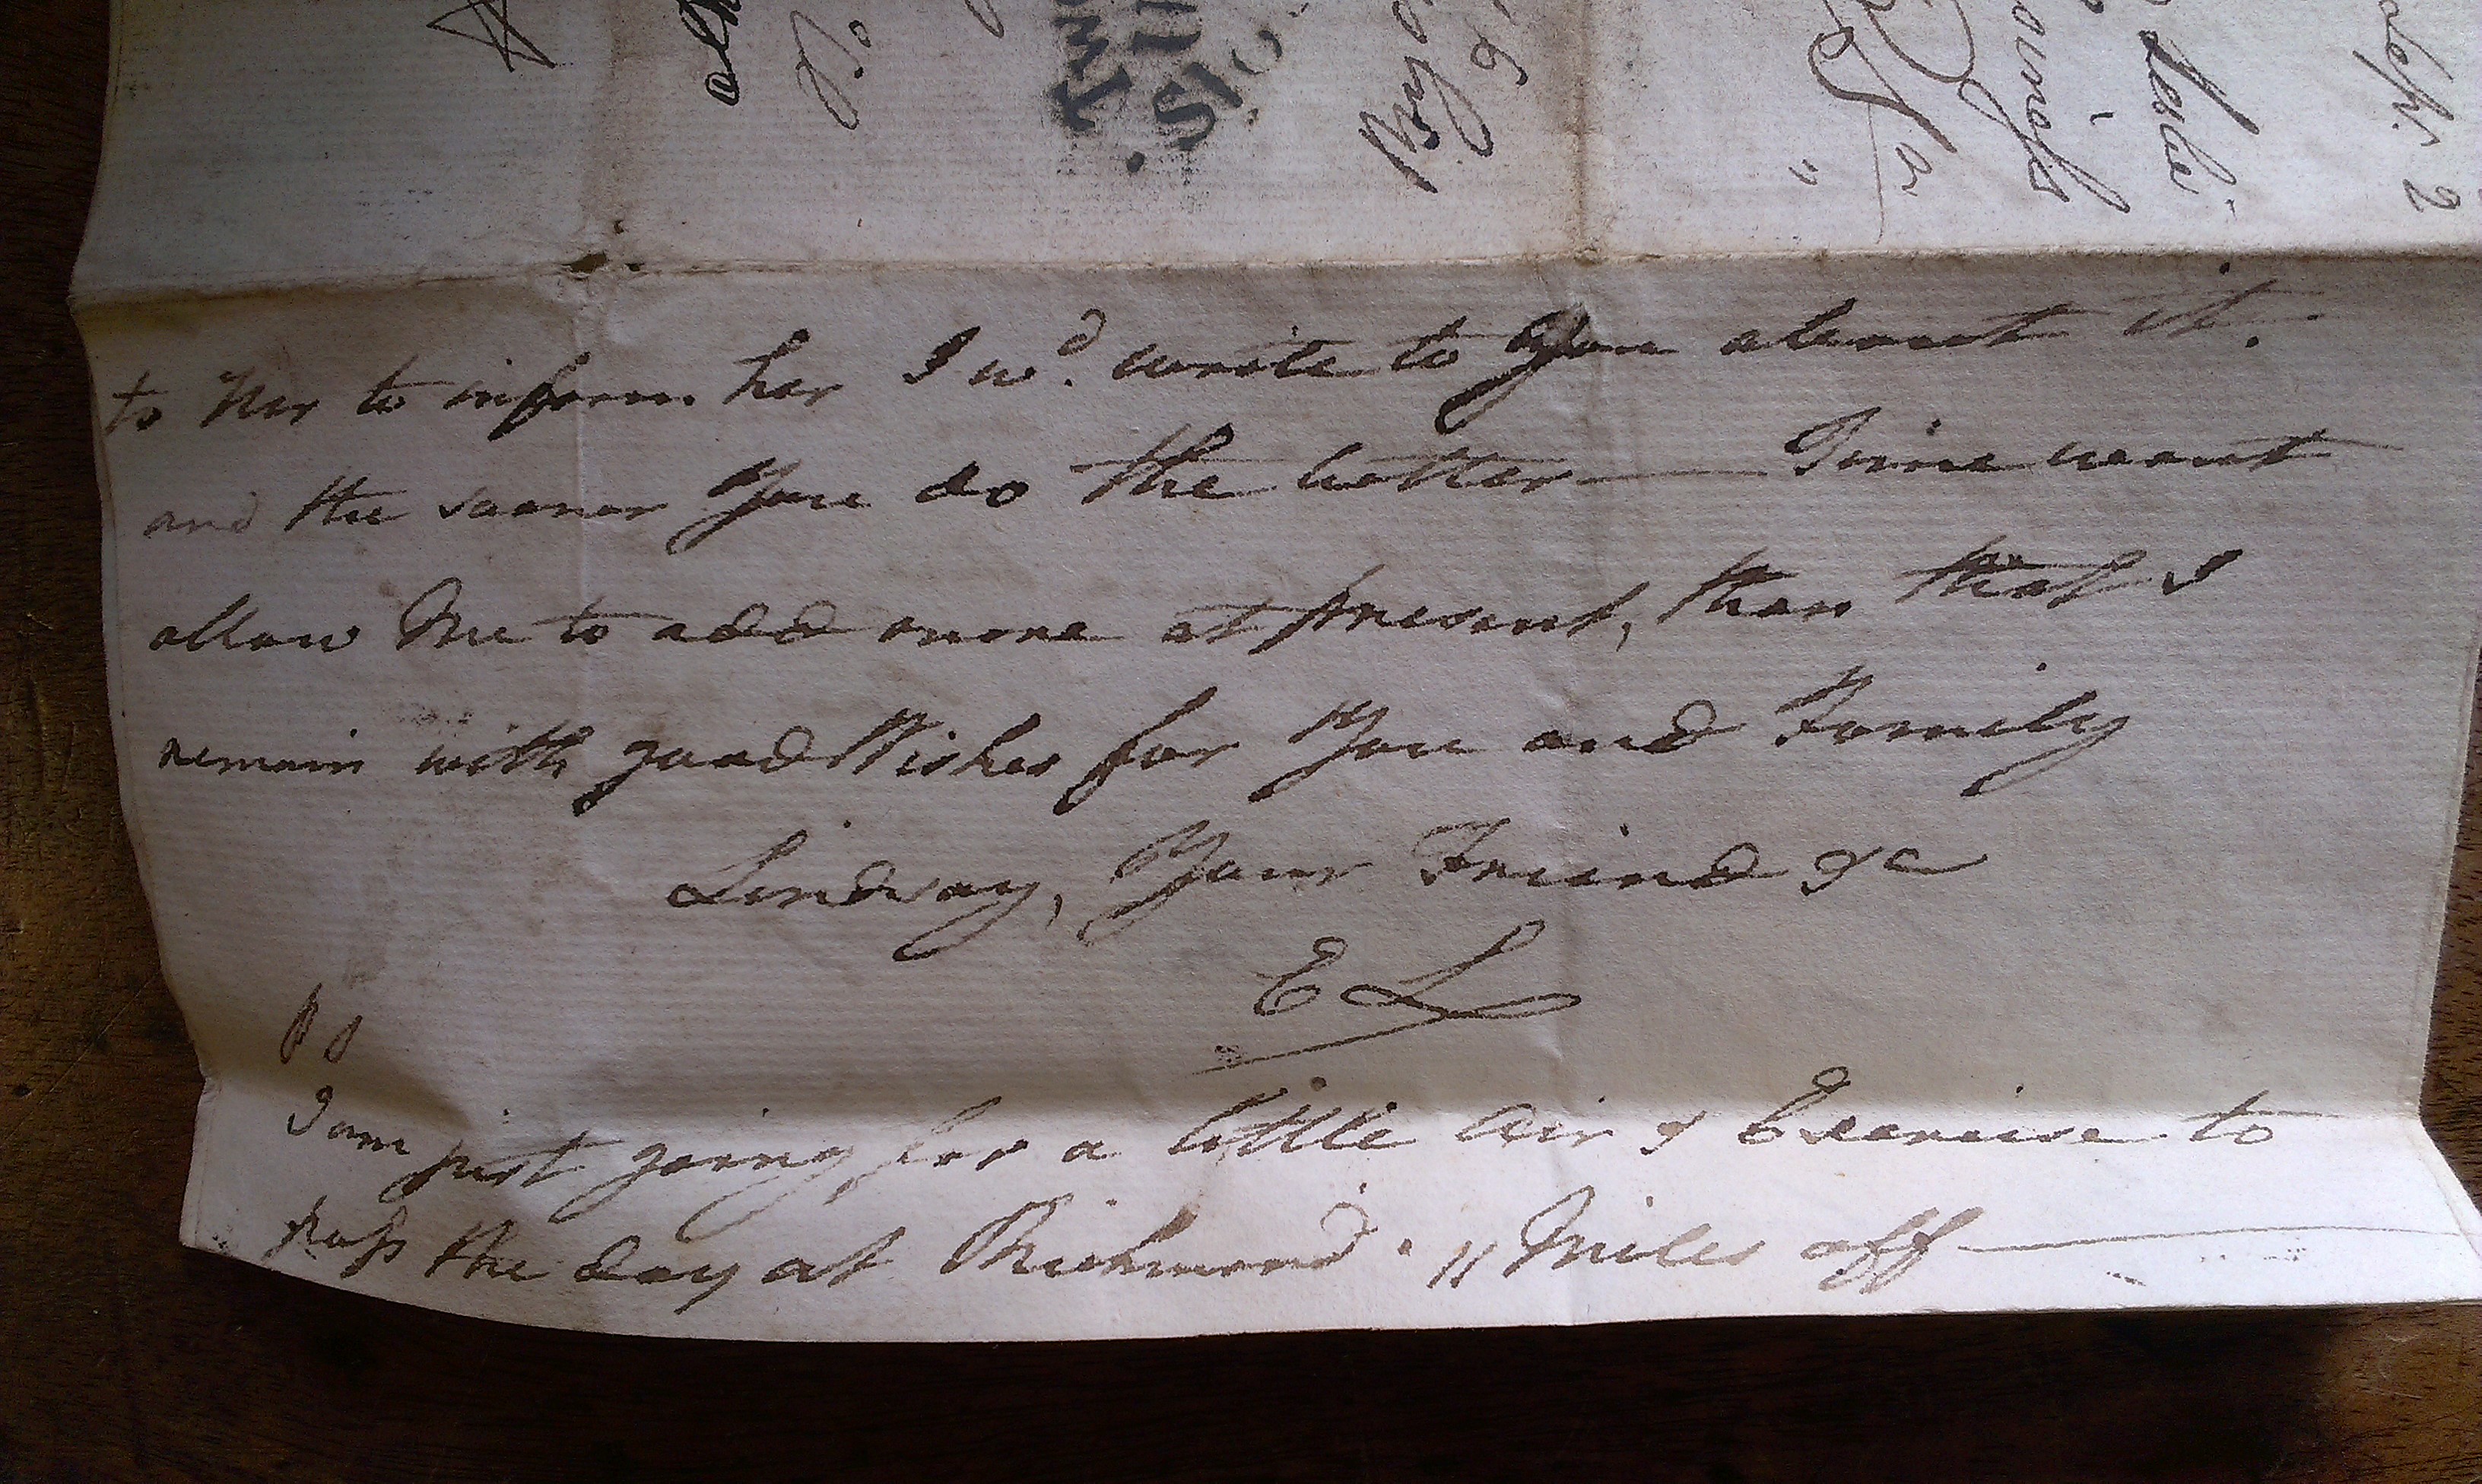 Leslie
to Her to inform her I w.d write to You about it.
and the sooner You do the better — Time wont
allow Me to add more at present, than that I
remain with good Wishes for You and Family
Lindsay, Your Friend &c
E L
PS
I am just going for a little Air & Exercise to
pass the day at Richmond . 11 Miles off —